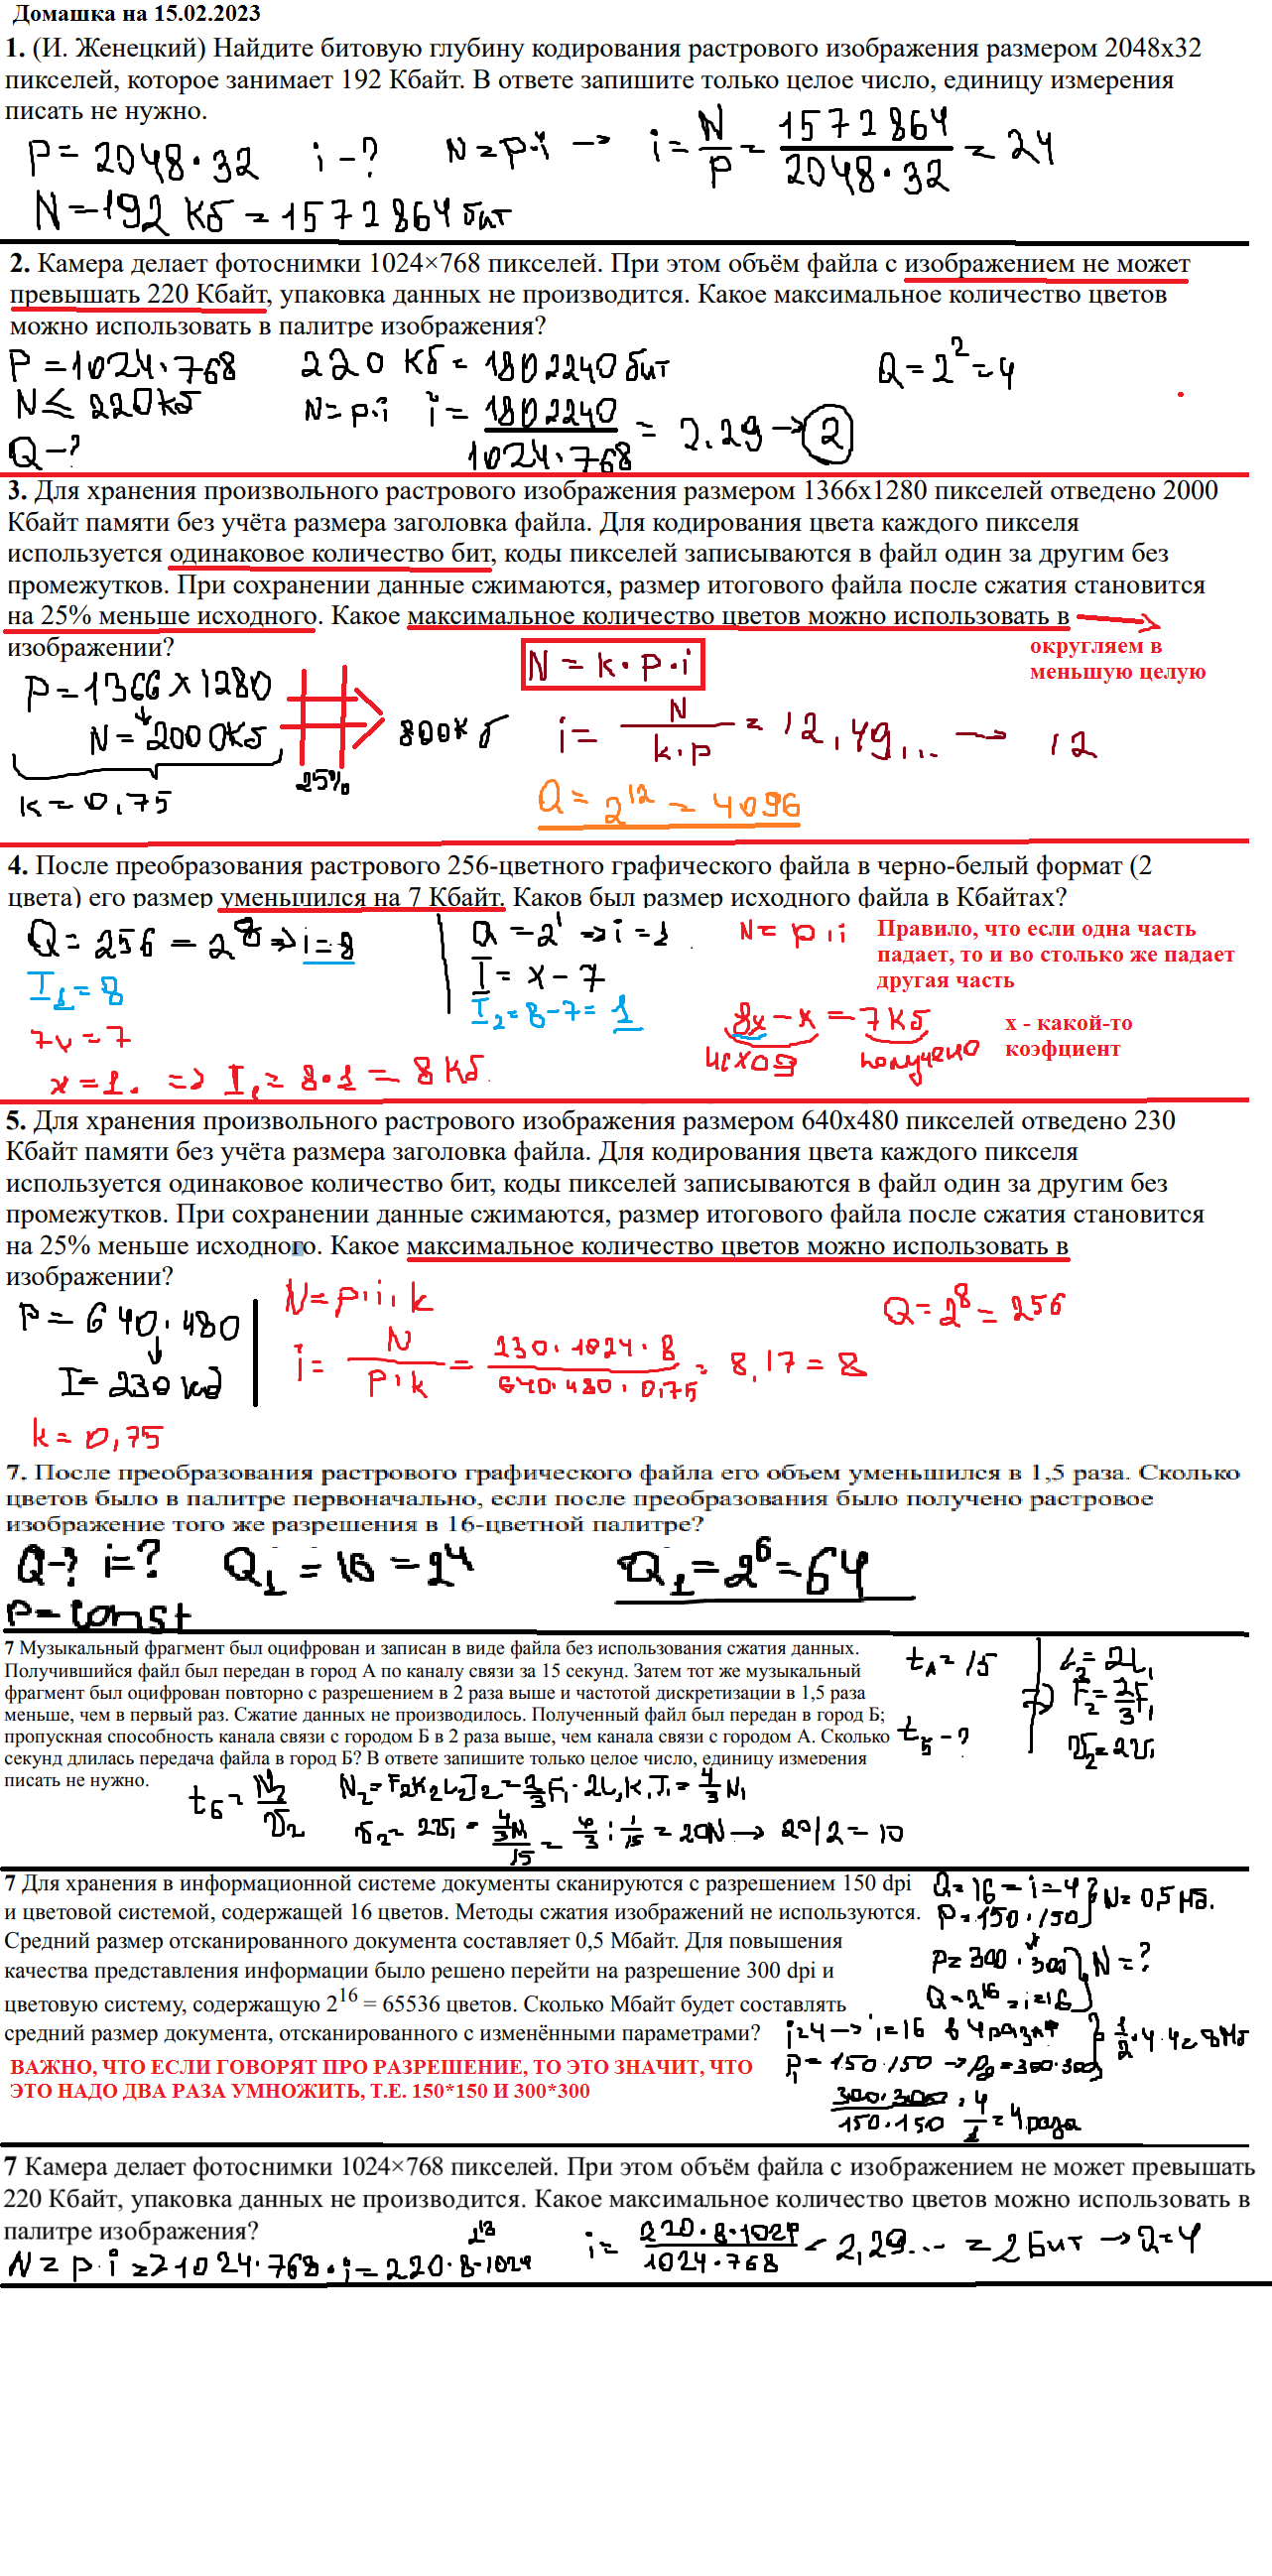 Домашка на 15.02.2023
1. (И. Женецкий) Найдите битовую глубину кодирования растрового изображения размером 2048x32
пикселей, которое занимает 192 Кбайт. В ответе запишите только целое число, единицу измерения
писать не нужно.
P = 2048·32 i - ? N = p·i → i = N/P = 1572864/2048·32 = 24
N = 192 Кб = 1572864 бит
2. Камера делает фотоснимки 1024×768 пикселей. При этом объём файла с изображением не может
превышать 220 Кбайт, упаковка данных не производится. Какое максимальное количество цветов
можно использовать в палитре изображения?
P = 1024·768 220 Кб = 1802240 бит Q = 2^2 = 4
N ≤ 220 Кб N = p·i i = 1802240/1024·768 = 2.29 → 2
Q - ?
3. Для хранения произвольного растрового изображения размером 1366x1280 пикселей отведено 2000
Кбайт памяти без учёта размера заголовка файла. Для кодирования цвета каждого пикселя
используется одинаковое количество бит, коды пикселей записываются в файл один за другим без
промежутков. При сохранении данные сжимаются, размер итогового файла после сжатия становится
на 25% меньше исходного. Какое максимальное количество цветов можно использовать в
изображении?
округляем в
меньшую целую
P = 1366 x 1280 N = k·p·i
N = 2000Кб 25% i = N/k·p = 12,49... → 12
k = 0,75
Q = 2^12 = 4096
4. После преобразования растрового 256-цветного графического файла в черно-белый формат (2
цвета) его размер уменьшился на 7 Кбайт. Каков был размер исходного файла в Кбайтах?
Q = 256 = 2^8 => i = 8 Q = 2^1 => i = 1 N = p·i
Правило, что если одна часть
падает, то и во столько же падает
другая часть
I = x - 7
I1 = 8 I2 = 8 - 7 = 1
7x = 7 8x - x = 7 Кб
x - какой-то
коэфциент
исход получено
x = 1. => I1 = 8·1 = 8 Кб.
5. Для хранения произвольного растрового изображения размером 640x480 пикселей отведено 230
Кбайт памяти без учёта размера заголовка файла. Для кодирования цвета каждого пикселя
используется одинаковое количество бит, коды пикселей записываются в файл один за другим без
промежутков. При сохранении данные сжимаются, размер итогового файла после сжатия становится
на 25% меньше исходного. Какое максимальное количество цветов можно использовать в
изображении?
P = 640·480 N = p·i·k Q = 2^8 = 256
I = 230 кб i = N/P·k = 230·1024·8/640·480·0,75 = 8,17 = 8
k = 0,75
7. После преобразования растрового графического файла его объем уменьшился в 1,5 раза. Сколько
цветов было в палитре первоначально, если после преобразования было получено растровое
изображение того же разрешения в 16-цветной палитре?
Q - ? i = ? Q1 = 16 = 2^4 Q1 = 2^6 = 64
P = const
7 Музыкальный фрагмент был оцифрован и записан в виде файла без использования сжатия данных.
Получившийся файл был передан в город А по каналу связи за 15 секунд. Затем тот же музыкальный
фрагмент был оцифрован повторно с разрешением в 2 раза выше и частотой дискретизации в 1,5 раза
меньше, чем в первый раз. Сжатие данных не производилось. Полученный файл был передан в город Б;
пропускная способность канала связи с городом Б в 2 раза выше, чем канала связи с городом А. Сколько
секунд длилась передача файла в город Б? В ответе запишите только целое число, единицу измерения
писать не нужно.
tA = 15 L2 = 2L1
F2 = 2/3 F1
tБ - ? V2 = 2V1
tБ = N2/V2 N2 = F2K2L2T2 = 2/3 F1·2L1K1T1 = 4/3 N1
V2 = 2V1 = 4/3N/15 = 4/3 : 1/15 = 20N → 20/2 = 10
7 Для хранения в информационной системе документы сканируются с разрешением 150 dpi
и цветовой системой, содержащей 16 цветов. Методы сжатия изображений не используются.
Средний размер отсканированного документа составляет 0,5 Мбайт. Для повышения
качества представления информации было решено перейти на разрешение 300 dpi и
цветовую систему, содержащую 2^16 = 65536 цветов. Сколько Мбайт будет составлять
средний размер документа, отсканированного с изменёнными параметрами?
ВАЖНО, ЧТО ЕСЛИ ГОВОРЯТ ПРО РАЗРЕШЕНИЕ, ТО ЭТО ЗНАЧИТ, ЧТО
ЭТО НАДО ДВА РАЗА УМНОЖИТЬ, Т.Е. 150*150 И 300*300
Q = 16 = i = 4
P = 150·150 N = 0,5 Мб.
P = 300·300 N = ?
Q = 2^16 = i = 16
i = 4 → i = 16 в 4 раза
P1 = 150·150 → P2 = 300·300 1/2·4·4 = 8 Мб
300·300/150·150 = 4/1 = 4 раза
7 Камера делает фотоснимки 1024×768 пикселей. При этом объём файла с изображением не может превышать
220 Кбайт, упаковка данных не производится. Какое максимальное количество цветов можно использовать в
палитре изображения?
2^13
N = p·i => 1024·768·i = 220·8·1024 i = 220·8·1024/1024·768 = 2,29... = 2 бит → 2 = 4